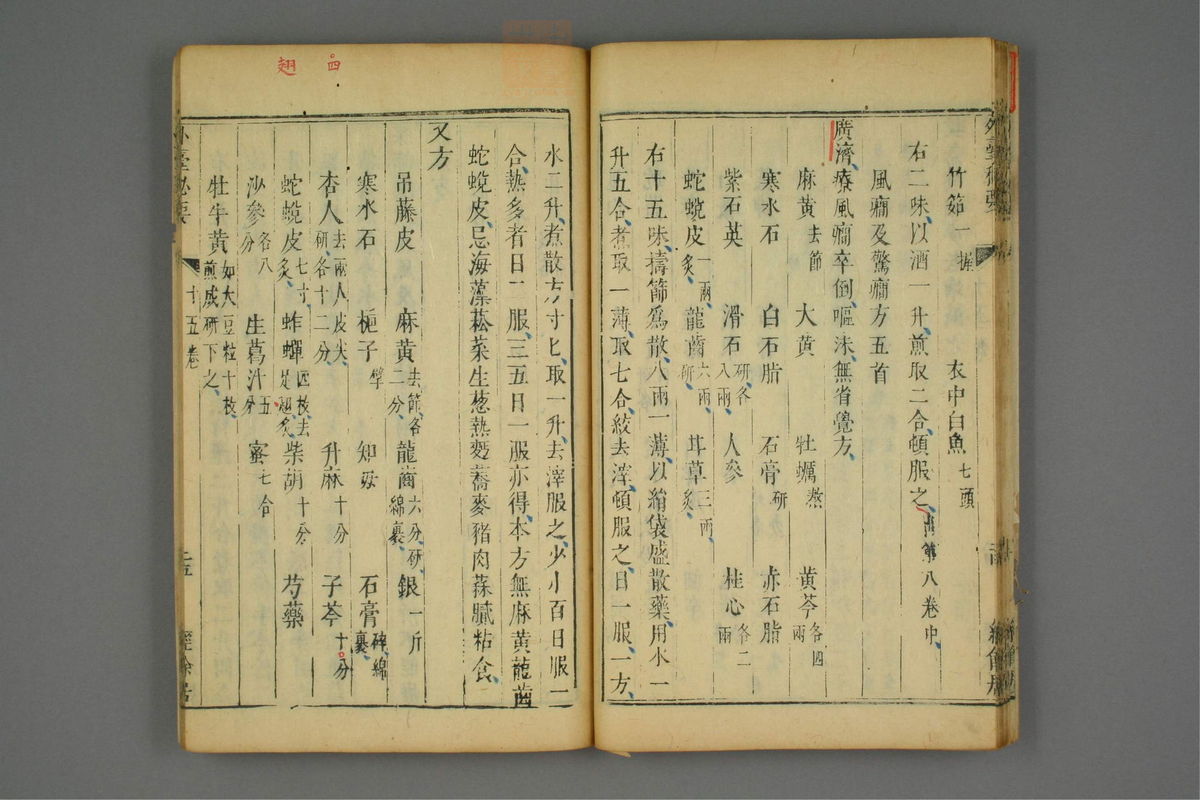 竹茹一握 衣中白魚七頭
右二味以酒一升煎取二合頓服之出第八卷中
風癎及驚癎方五首
廣濟療風癎卒倒嘔沫無省覺方
麻黄去節 大黄 牡蠣熬 黄芩各四兩
寒水石 白石脂 石膏研 赤石脂
紫石英 滑石研各八兩 人參 桂心各二兩
蛇蛻皮炙一兩 龍齒研六兩 甘草炙三兩
右十五味擣篩爲散八兩一薄以絹袋盛散藥用水一
升五合煮取一薄取七合絞去滓頓服之日一服一方
水二升煮散方寸匕取一升去滓服之少小百日服一
合熱多者日二服三五日一服亦得本方無麻黄龍齒
蛇蛻皮忌海藻菘菜生葱熱麪蕎麥豬肉蒜膩粘食
又方
吊藤皮 麻黄去節各二分 龍齒六分研綿裹 銀一斤
寒水石 梔子擘 知母 石膏碎綿裹
杏人去兩人皮尖研各十二分 升麻十分 子芩十分
蛇蛻皮七寸炙 蚱蟬四枚去足翅炙 柴胡十分 芍藥
沙參各八分 生葛汁五分 蜜七合
牡牛黄如大豆粒十枚煎成研下之
外臺秘要
十五卷
二五
經餘居
四
翅